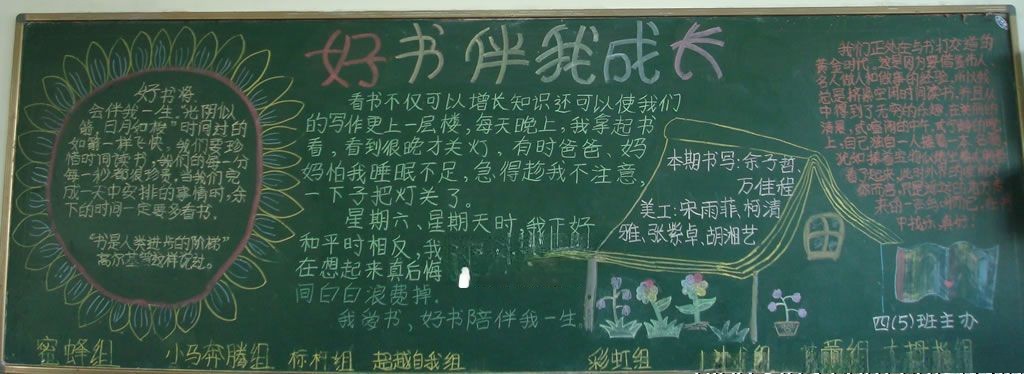 好书伴我成长
好书将
会伴我一生,"光阴似
箭,日月如梭"时间过的
如箭一样飞快。我们要珍
惜时间读书,我们的每一分
每一秒都很珍贵,当我们完
成一天中安排的事情时,余
下的时间一定要多看书。
"书是人类进步的阶梯"
高尔基曾这样说过。
看书不仅可以增长知识还可以使我们
的写作更上一层楼,每天晚上,我拿起书
看,看到很晚才关灯,有时爸爸、妈
妈怕我睡眠不足,急得趁我不注意,
一下子把灯关了。
星期六、星期天时,我正好
和平时相反,我
在想起来真后悔
间白白浪费掉.
我爱书、好书陪伴我一生
本期书写:余子哲、
万佳程
美工:宋雨菲,柯清
雅、张紫卓、胡湘艺
我们正处在与书打交道的
黄金时代,这是因为要借鉴伟人、
名人做人和做事的经验,所以我
总是挤空闲时间读书,并且从
中得到了无穷的乐趣,在美丽的
四(5)班主办
蜜蜂组
小马奔腾组
标杆组
超越自我组
彩虹组